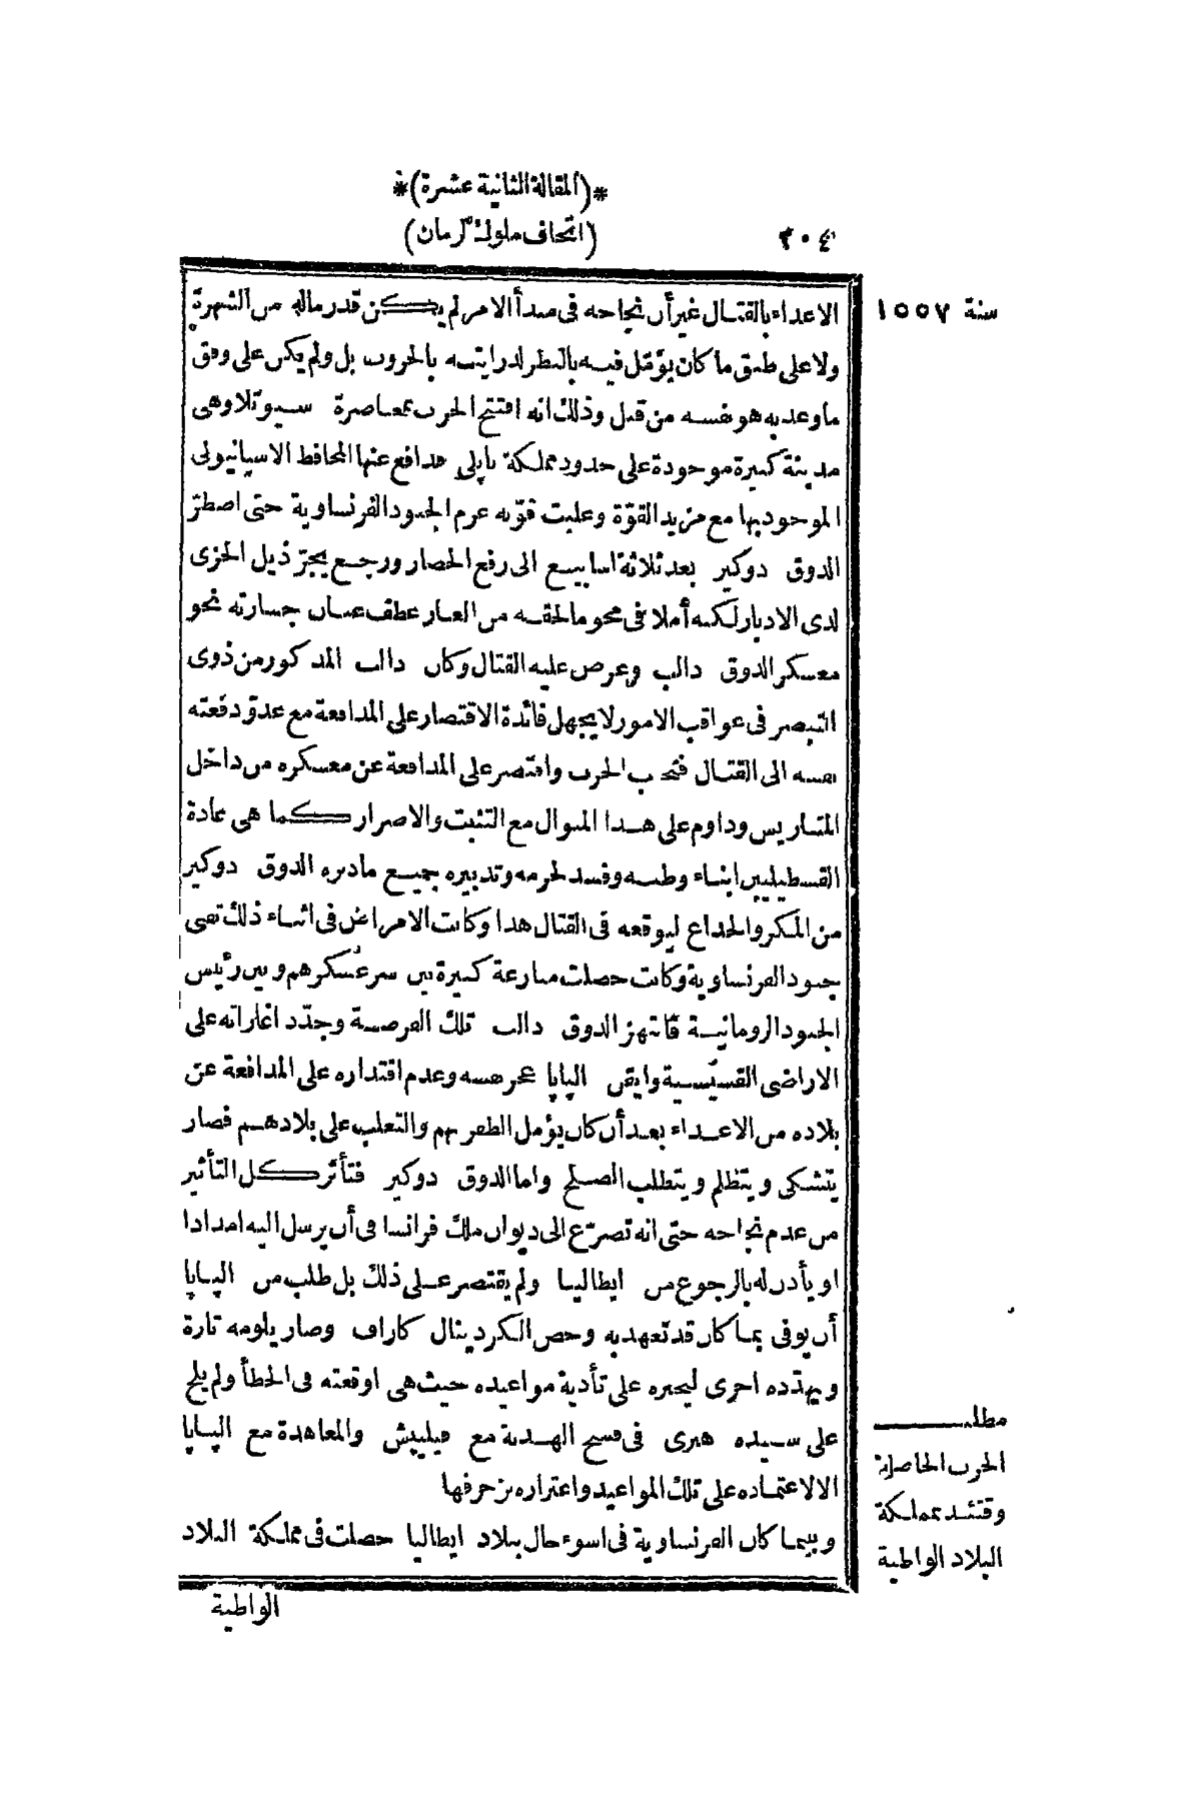 *(المقالة الثانية عشرة)*
٣٠٤ (اتحاف ملوك الزمان)
سنة ١٥٥٧
الاعداء بالقتال غير أن نجاحه فى مبدأ الامر لم يكن قدر ماله من الشهرة
ولا على طبق ما كان يؤمّل فيه بالنظر لدرايته بالحروب بل ولم يكن على وفق
ما وعد به هو نفسه من قبل وذلك انه افتتح الحرب بمحاصرة سيوتلا وهى
مدينة كبيرة موجودة على حدود مملكة ناپلى فدافع عنها المحافظ الاسپانيولى
الموجود بها مع مزيد القوّة وغلبت قوّته عزم الجنود الفرنساوية حتى اضطرّ
الدوق دوكير بعد ثلاثة اسابيع الى رفع الحصار ورجع يجرّ ذيل الخزى
لدى الادبار لكنه أملا فى محو ما لحقه من العار عطف عنان جسارته نحو
معسكر الدوق دالب وعرض عليه القتال وكان دالب المذكور من ذوى
التبصر فى عواقب الامور لا يجهل فائدة الاقتصار على المدافعة مع عدوّ دفعته
نفسه الى القتال فتجنب الحرب واقتصر على المدافعة عن معسكره من داخل
المتاريس وداوم على هذا المنوال مع التثبت والاصرار كما هى عادة
القسطيليين ابناء وطنه وفسد لحزمه وتدبيره جميع ما دبره الدوق دوكير
من المكر والخداع ليوقعه فى القتال هذا وكانت الامراض فى اثناء ذلك تفنى
جنود الفرنساوية وكانت حصلت منازعة كبيرة بين سرعسكرهم وبين رئيس
الجنود الرومانية فانتهز الدوق دالب تلك الفرصة وجدّد اغاراته على
الاراضى القسيسية وايقن الپاپا عجز نفسه وعدم اقتداره على المدافعة عن
بلاده من الاعداء بعد أن كان يؤمل الظفر بهم والتغلب على بلادهم فصار
يتشكى ويتظلم ويتطلب الصلح واما الدوق دوكير فتأثر كل التأثير
من عدم نجاحه حتى انه تضرّع الى ديوان ملك فرانسا فى أن يرسل اليه امدادا
او يأذن له بالرجوع من ايطاليا ولم يقتصر على ذلك بل طلب من الپاپا
أن يوفى بما كان قد تعهد به وخص الكردينال كاراف وصار يلومه تارة
ويهدّده اخرى ليجبره على تأدية مواعيده حيث هى اوقعته فى الخطأ ولم يلح
على سيده هنرى فى فسح الهدنة مع فيليپش والمعاهدة مع الپاپا
الا لاعتماده على تلك المواعيد واغتراره بزخرفها
وبينما كان الفرنساوية فى اسوء حال ببلاد ايطاليا حصلت فى مملكة البلاد
مطلب
الحرب الحاصلة
وقتئذ بمملكة
البلاد الواطية
الواطية